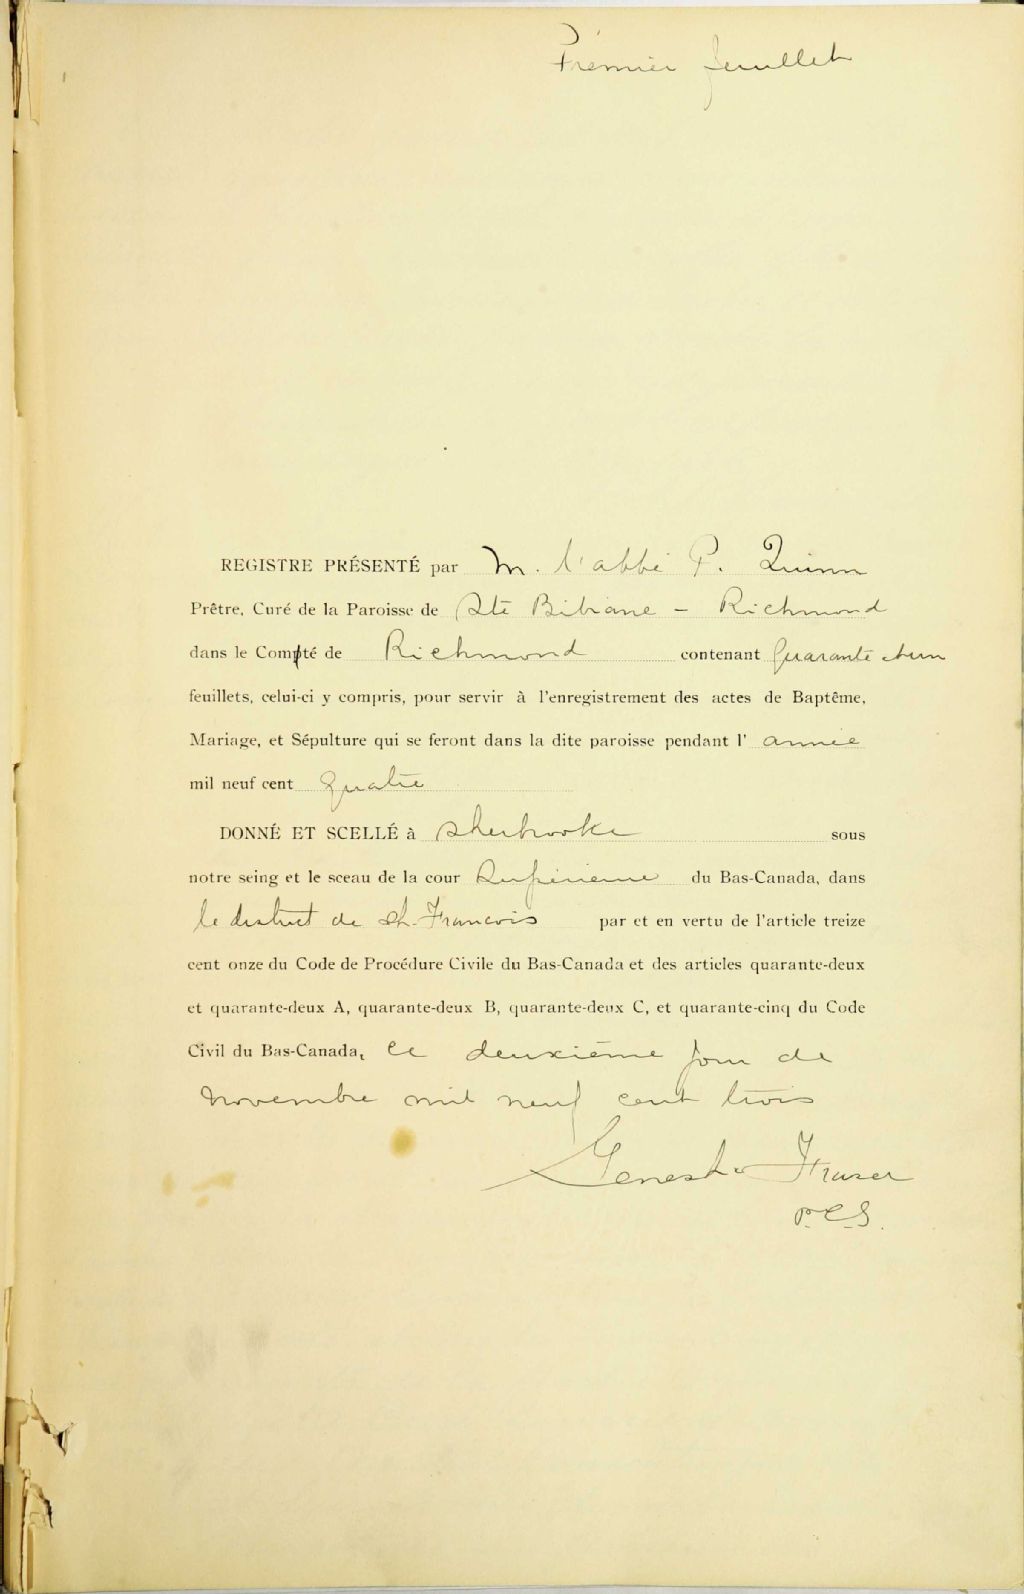 Premier feuillet
REGISTRE PRÉSENTÉ par M. l'abbé P. Quinn
Prêtre, Curé de la Paroisse de Ste Bibiane - Richmond
dans le Comté de Richmond contenant Quarante et un
feuillets, celui-ci y compris, pour servir à l'enregistrement des actes de Baptême,
Mariage, et Sépulture qui se feront dans la dite paroisse pendant l' année
mil neuf cent quatre
DONNÉ ET SCELLÉ à Sherbrooke sous
notre seing et le sceau de la cour Supérieure du Bas-Canada, dans
le district de St. Francois par et en vertu de l'article treize
cent onze du Code de Procédure Civile du Bas-Canada et des articles quarante-deux
et quarante-deux A, quarante-deux B, quarante-deux C, et quarante-cinq du Code
Civil du Bas-Canada, ce deuxième jour de
novembre mil neuf cent trois
Genest & Fraser
P.C.S.